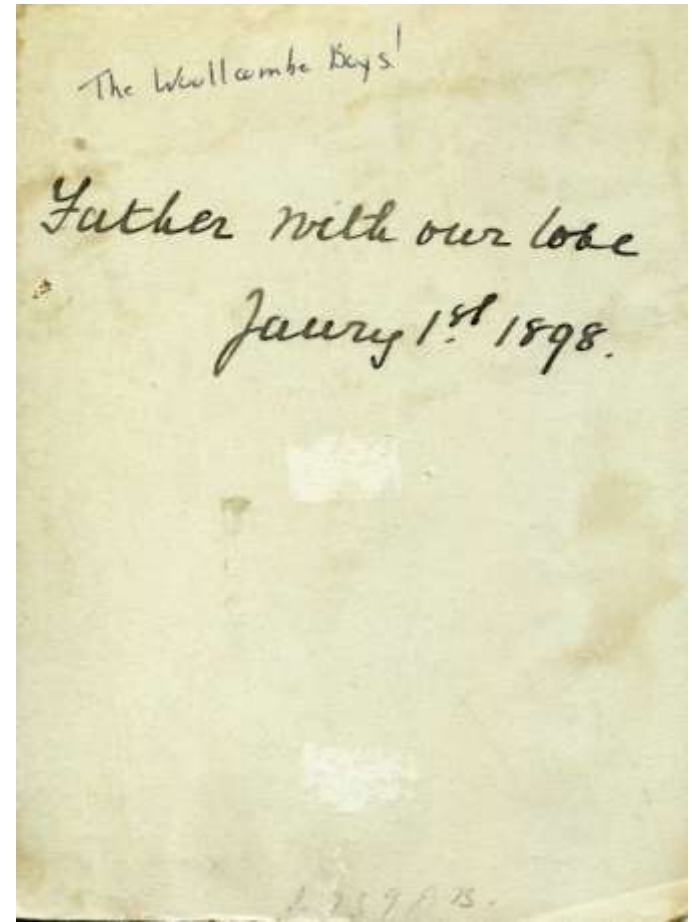 The Woollcombe Boys!
Father with our love
Jaury 1st 1898.